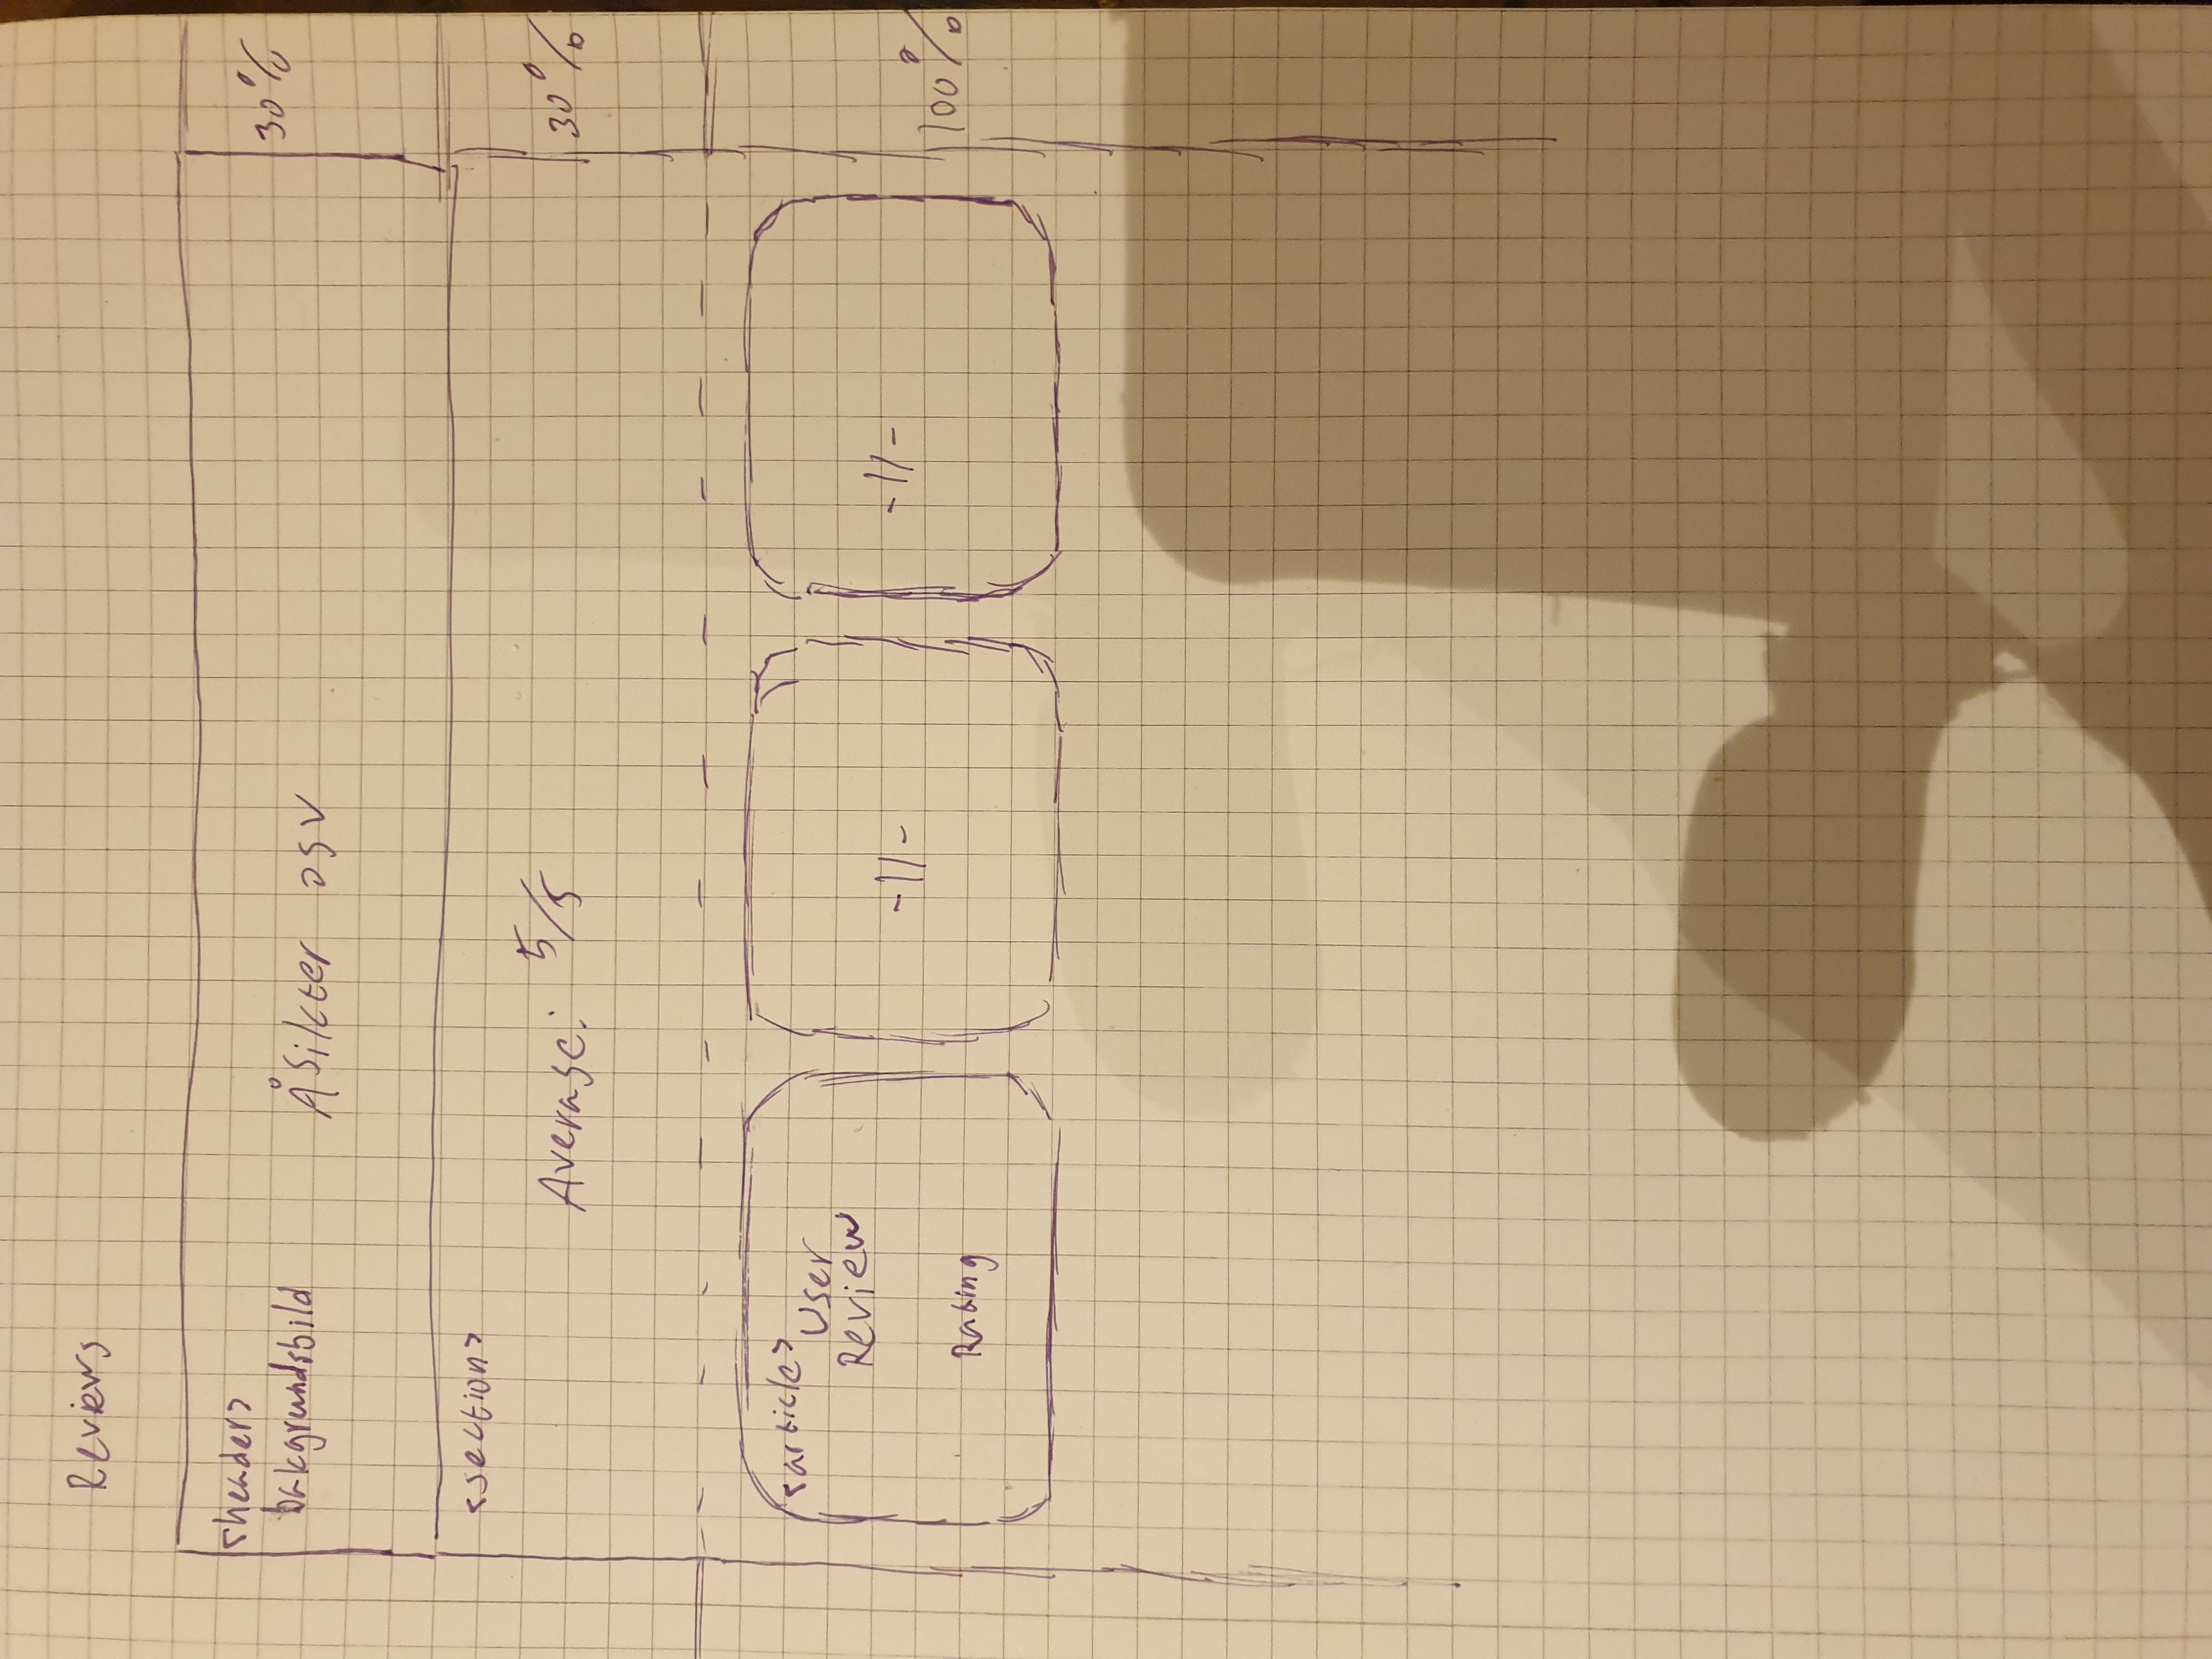 Reviews
<header>
bakgrundsbild
Åsikter osv
30%
<section>
Average: 5/5
30%
<article>
User
Review
Rating
-11-
-11-
100%